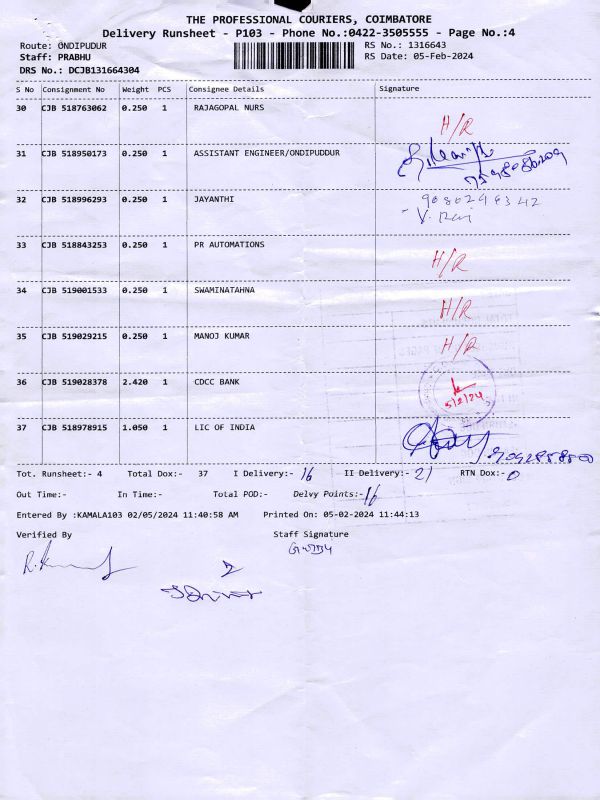 THE PROFESSIONAL COURIERS, COIMBATORE
Delivery Runsheet - P103 - Phone No.:0422-3505555 - Page No.:4
Route: ONDIPUDUR RS No.: 1316643
Staff: PRABHU RS Date: 05-Feb-2024
DRS No.: DCJB131664304
S No Consignment No Weight PCS Consignee Details Signature
30 CJB 518763062 0.250 1 RAJAGOPAL NURS H/R
31 CJB 518950173 0.250 1 ASSISTANT ENGINEER/ONDIPUDDUR
32 CJB 518996293 0.250 1 JAYANTHI
33 CJB 518843253 0.250 1 PR AUTOMATIONS H/R
34 CJB 519001533 0.250 1 SWAMINATAHNA H/R
35 CJB 519029215 0.250 1 MANOJ KUMAR H/R
36 CJB 519028378 2.420 1 CDCC BANK 5/2/24
37 CJB 518978915 1.050 1 LIC OF INDIA
Tot. Runsheet:- 4 Total Dox:- 37 I Delivery:- 16 II Delivery:- 21 RTN Dox:- 0
Out Time:- In Time:- Total POD:- Delvy Points:- 16
Entered By :KAMALA103 02/05/2024 11:40:58 AM Printed On: 05-02-2024 11:44:13
Verified By Staff Signature